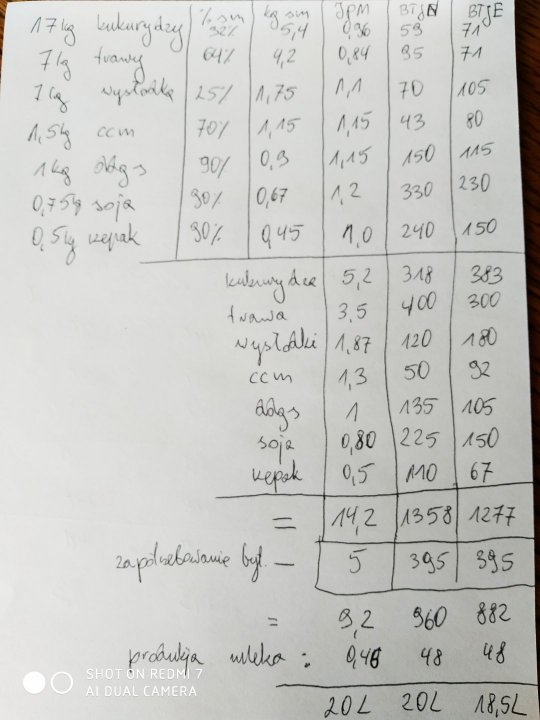 % sm kg sm JPM BTJN BTJE
17 kg kukurydzy 32% 5,4 0,96 59 71
7 kg trawy 64% 4,2 0,84 95 71
7 kg wysłodka 25% 1,75 1,1 70 105
1,5 kg ccm 70% 1,15 1,15 43 80
1 kg ddgs 90% 0,9 1,15 150 115
0,75 kg soja 90% 0,67 1,2 330 230
0,5 kg rzepak 90% 0,45 1,0 240 150
kukurydza 5,2 318 383
trawa 3,5 400 300
wysłodki 1,87 120 180
ccm 1,3 50 92
ddgs 1 135 105
soja 0,80 225 150
rzepak 0,5 110 67
= 14,2 1358 1277
zapotrzebowanie byt. - 5 395 395
= 9,2 960 882
produkcja mleka : 0,46 48 48
20 L 20 L 18,5 L
SHOT ON REDMI 7
AI DUAL CAMERA